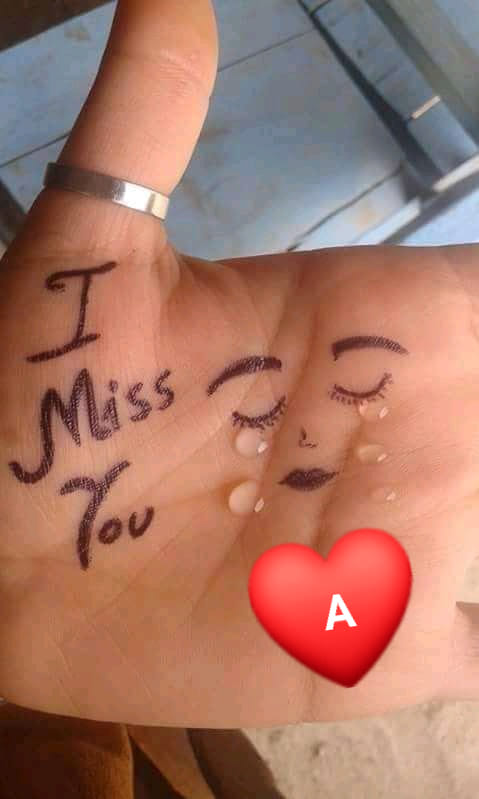 I
Miss
You
A